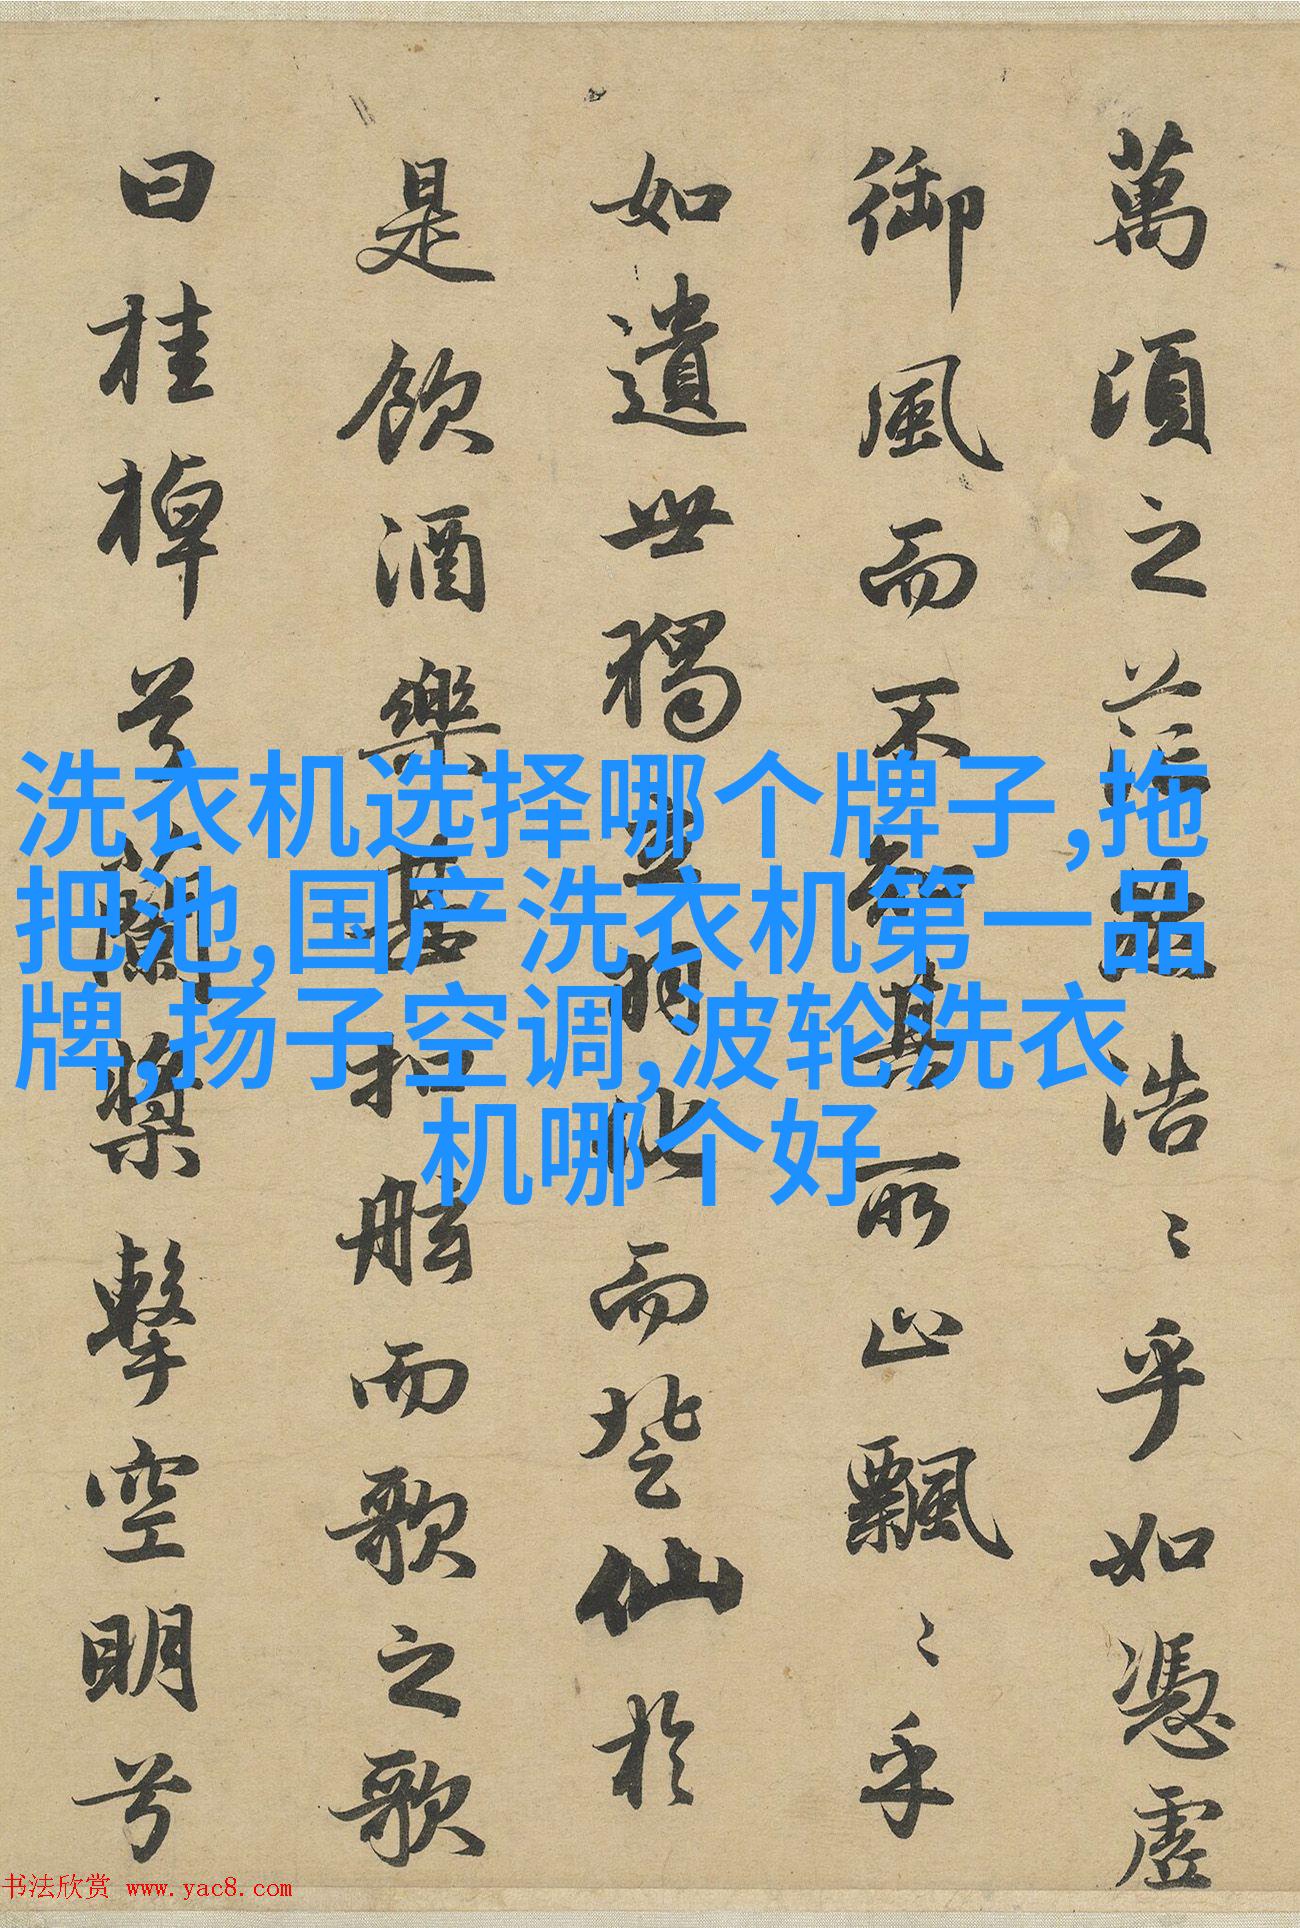 萬頃之茫然浩〻乎如憑虛
御風而不知其所止飄〻乎
如遺世獨立羽化而登仙於
是飲酒樂甚扣舷而歌之歌
曰桂棹兮蘭槳擊空明兮
洗衣机选择哪个牌子,拖
把池,国产洗衣机第一品
牌,扬子空调,波轮洗衣
机哪个好
书法欣赏 www.yac8.com